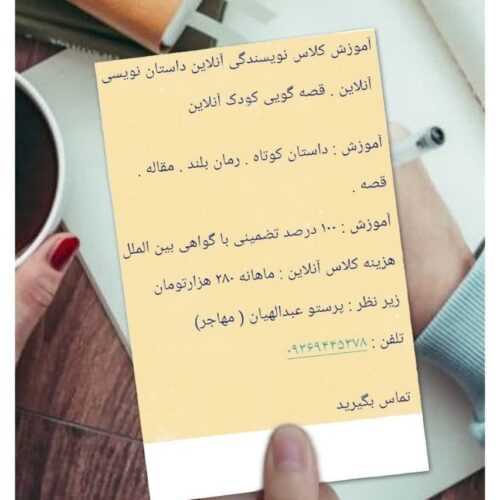 آموزش کلاس نویسندگی آنلاین داستان نویسی
آنلاین . قصه گویی کودک آنلاین
آموزش : داستان کوتاه . رمان بلند . مقاله .
قصه .
آموزش : ۱۰۰ درصد تضمینی با گواهی بین الملل
هزینه کلاس آنلاین : ماهانه ۲۸۰ هزارتومان
زیر نظر : پرستو عبدالهیان ( مهاجر)
تلفن : ۰۹۳۶۹۴۴۵۳۷۸
تماس بگیرید